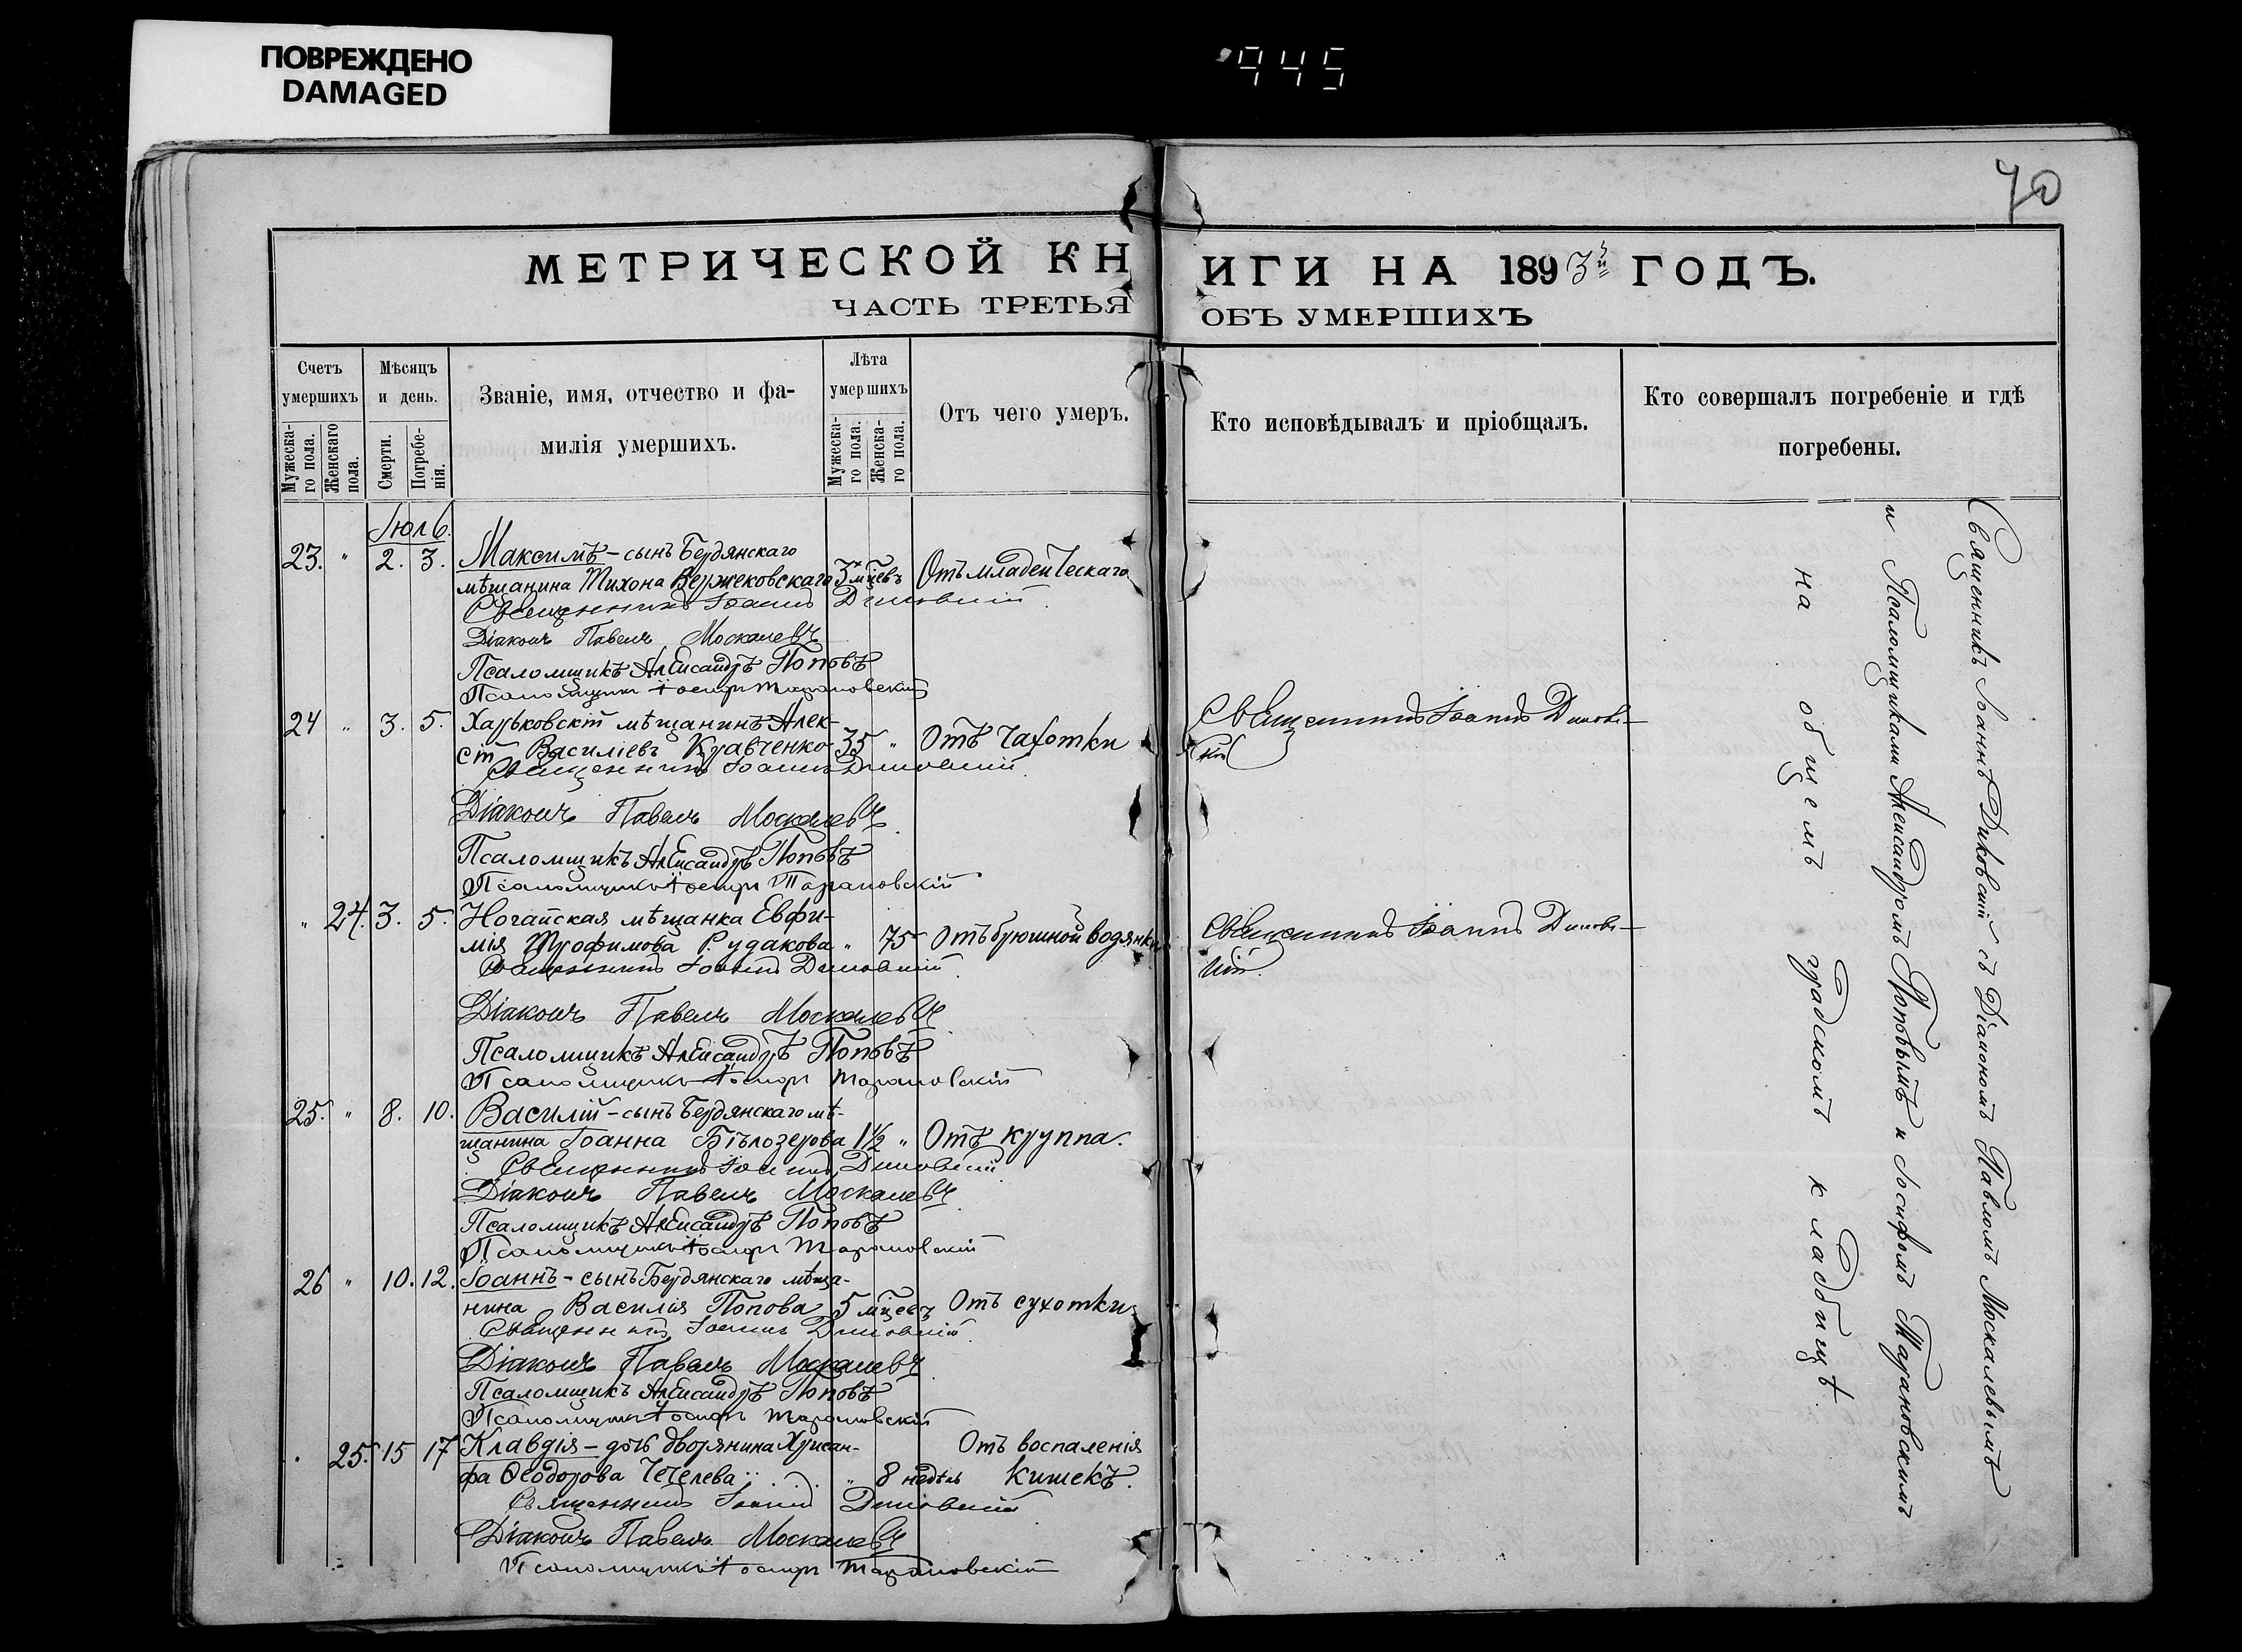 ПОВРЕЖДЕНО
DAMAGED
945
70
МЕТРИЧЕСКОЙ КНИГИ НА 1893й ГОДЪ.
ЧАСТЬ ТРЕТЬЯ ОБЪ УМЕРШИХЪ
Счетъ умершихъ
Мужескаго пола.
Женскаго пола.
Мѣсяцъ и день.
Смерти.
Погребенія.
Званіе, имя, отчество и фа-
милія умершихъ.
Лѣта умершихъ
Мужескаго пола.
Женскаго пола.
Отъ чего умеръ.
Кто исповѣдывалъ и пріобщалъ.
Кто совершалъ погребеніе и гдѣ
погребены.
Іюль.
23. " 2. 3. Максимъ – сынъ Бердянскаго
мѣщанина Тихона Вержековскаго 3х мцевъ Отъ младенческаго
Священникъ Іоаннъ Диковскій.
Діаконъ Павелъ Москалевъ
Псаломщикъ Александръ Поповъ
Псаломщикъ Іосифъ Тарановскій
24 " 3. 5. Харьковскій мѣщанинъ Алек-
сій Василіевъ Кравченко 35 " Отъ чахотки
Священникъ Іоаннъ Диковс-
кій
Священникъ Іоаннъ Диковскій.
Діаконъ Павелъ Москалевъ.
Псаломщикъ Александръ Поповъ
Псаломщикъ Іосифъ Тарановскій
" 24. 3. 5. Ногайская мѣщанка Евфи-
мія Трофимова Рудакова " 75 Отъ брюшной водянки
Священникъ Іоаннъ Диковс-
кій.
Священникъ Іоаннъ Диковскій.
Діаконъ Павелъ Москалевъ
Псаломщикъ Александръ Поповъ
Псаломщикъ Іосифъ Тарановскій
25. " 8. 10. Василій – сынъ Бердянскаго мѣ-
щанина Іоанна Бѣлозерова 1½ " Отъ круппа.
Священникъ Іоаннъ Диковскій
Діаконъ Павелъ Москалевъ
Псаломщикъ Александръ Поповъ
Псаломщикъ Іосифъ Тарановскій
26 " 10. 12. Іоаннъ – сынъ Бердянскаго мѣща-
нина Василія Попова 5 мцевъ Отъ сухотки
Священникъ Іоаннъ Диковскій.
Діаконъ Павелъ Москалевъ
Псаломщикъ Александръ Поповъ
Псаломщикъ Іосифъ Тарановскій
" 25. 15 17 Клавдія – дочь дворянина Хрисан-
фа Ѳеодорова Чечелева " 8 недѣль Отъ воспаленія
кишекъ.
Священникъ Іоаннъ Диковскій
Діаконъ Павелъ Москалевъ
Псаломщикъ Іосифъ Тарановскій
Священникъ Іоаннъ Диковскій съ Діакономъ Павломъ Москалевымъ
и Псаломщиками Александромъ Поповымъ и Іосифомъ Тарановскимъ
на общемъ градскомъ кладбищѣ.